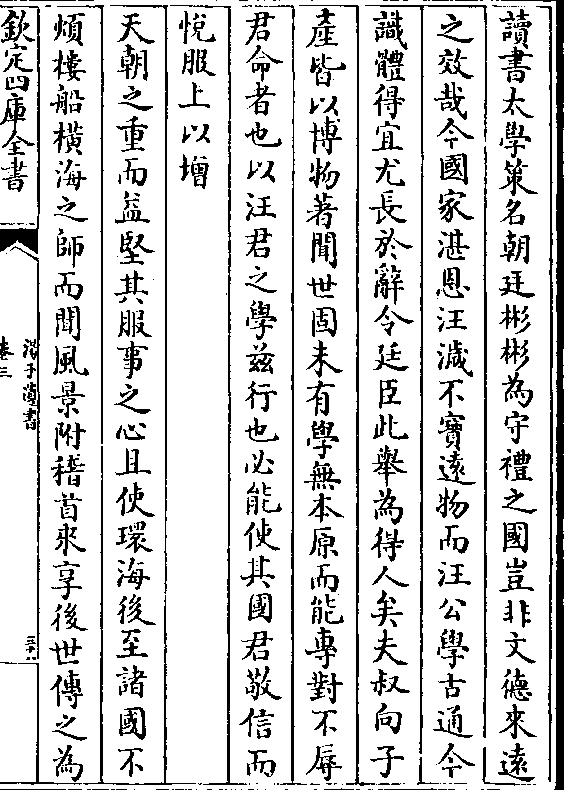 讀書太學策名朝廷彬彬為守禮之國豈非文德來遠
之效哉今國家湛恩汪濊不寶遠物而汪公學古通今
識體得宜尤長於辭令廷臣此舉為得人矣夫叔向子
產皆以博物著聞世固未有學無本原而能專對不辱
君命者也以汪君之學兹行也必能使其國君敬信而
悅服上以增
天朝之重而益堅其服事之心且使環海後至諸國不
煩樓船橫海之師而聞風景附稽首來享後世傳之為
欽定四庫全書
湛子遺書
卷三
三十八